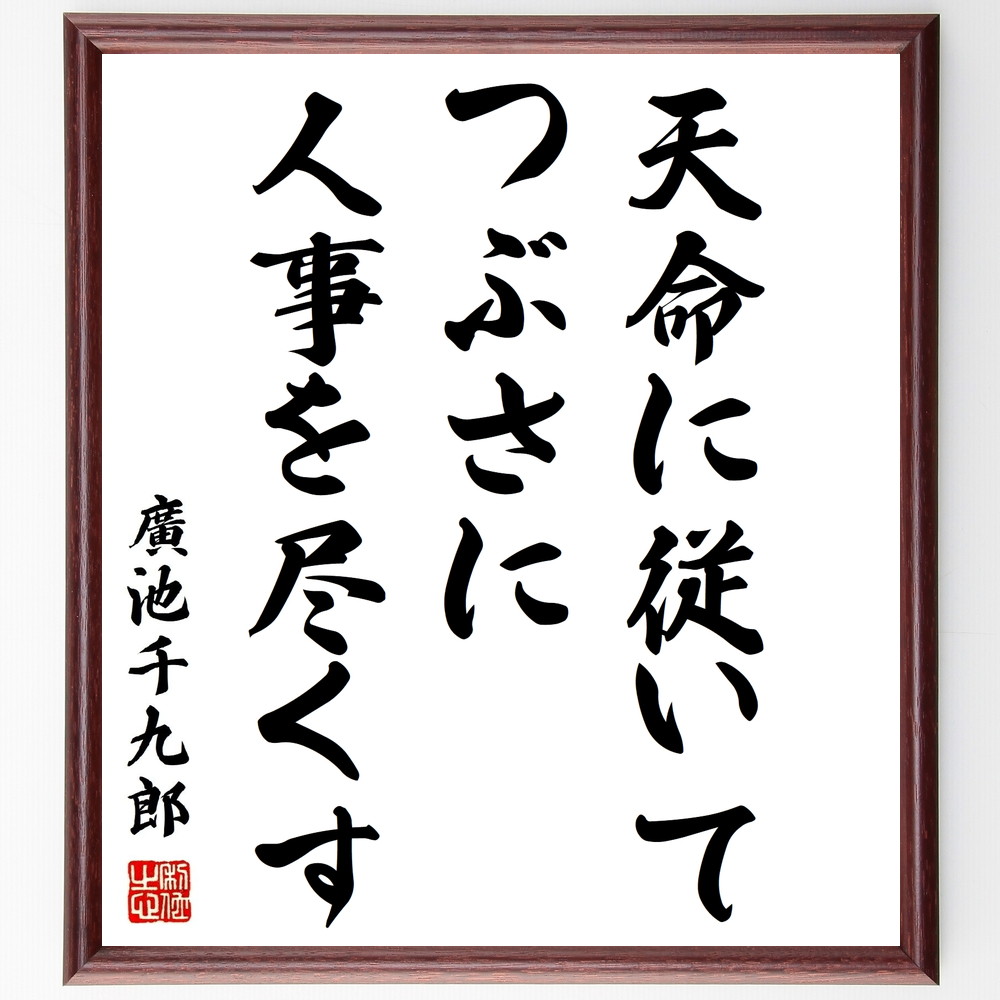 天命に従いて
つぶさに
人事を尽くす
廣池千九郎